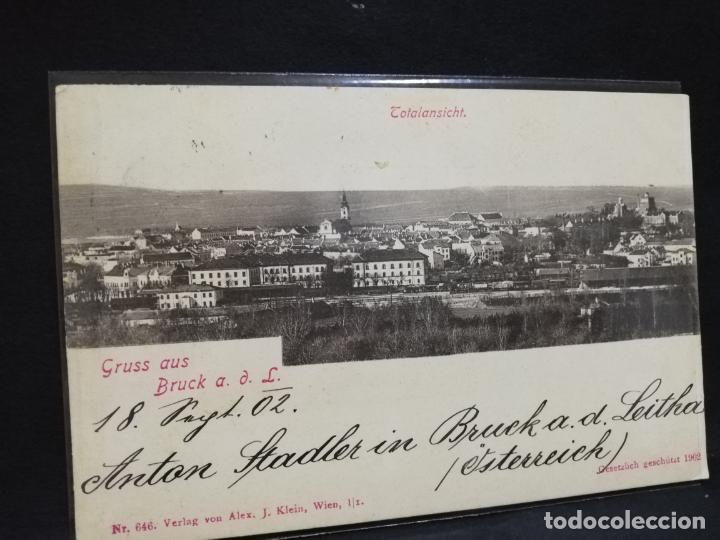 Totalansicht.
Gruss aus
Bruck a. d. L.
18. Sept. 02.
Anton Stadler in Bruck a. d. Leitha
(Österreich)
Gesetzlich geschützt 1902
Nr. 646. Verlag von Alex. J. Klein, Wien, I/1.
todocoleccion